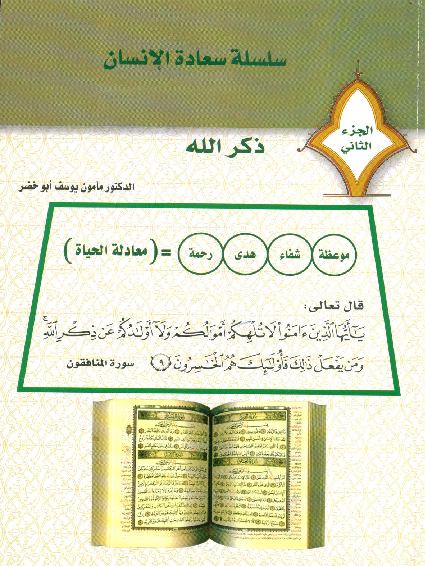 سلسلة سعادة الإنسان
الجزء
الثاني
ذكر الله
الدكتور مأمون يوسف أبو خضر
موعظة شفاء هدى رحمة = ( معادلة الحياة )
قال تعالى:
يَـٰٓأَيُّهَا ٱلَّذِينَ ءَامَنُوا۟ لَا تُلْهِكُمْ أَمْوَٰلُكُمْ وَلَآ أَوْلَـٰدُكُمْ عَن ذِكْرِ ٱللَّهِ ۚ
وَمَن يَفْعَلْ ذَٰلِكَ فَأُو۟لَـٰٓئِكَ هُمُ ٱلْخَـٰسِرُونَ ﴿٩﴾ سورة المنافقون